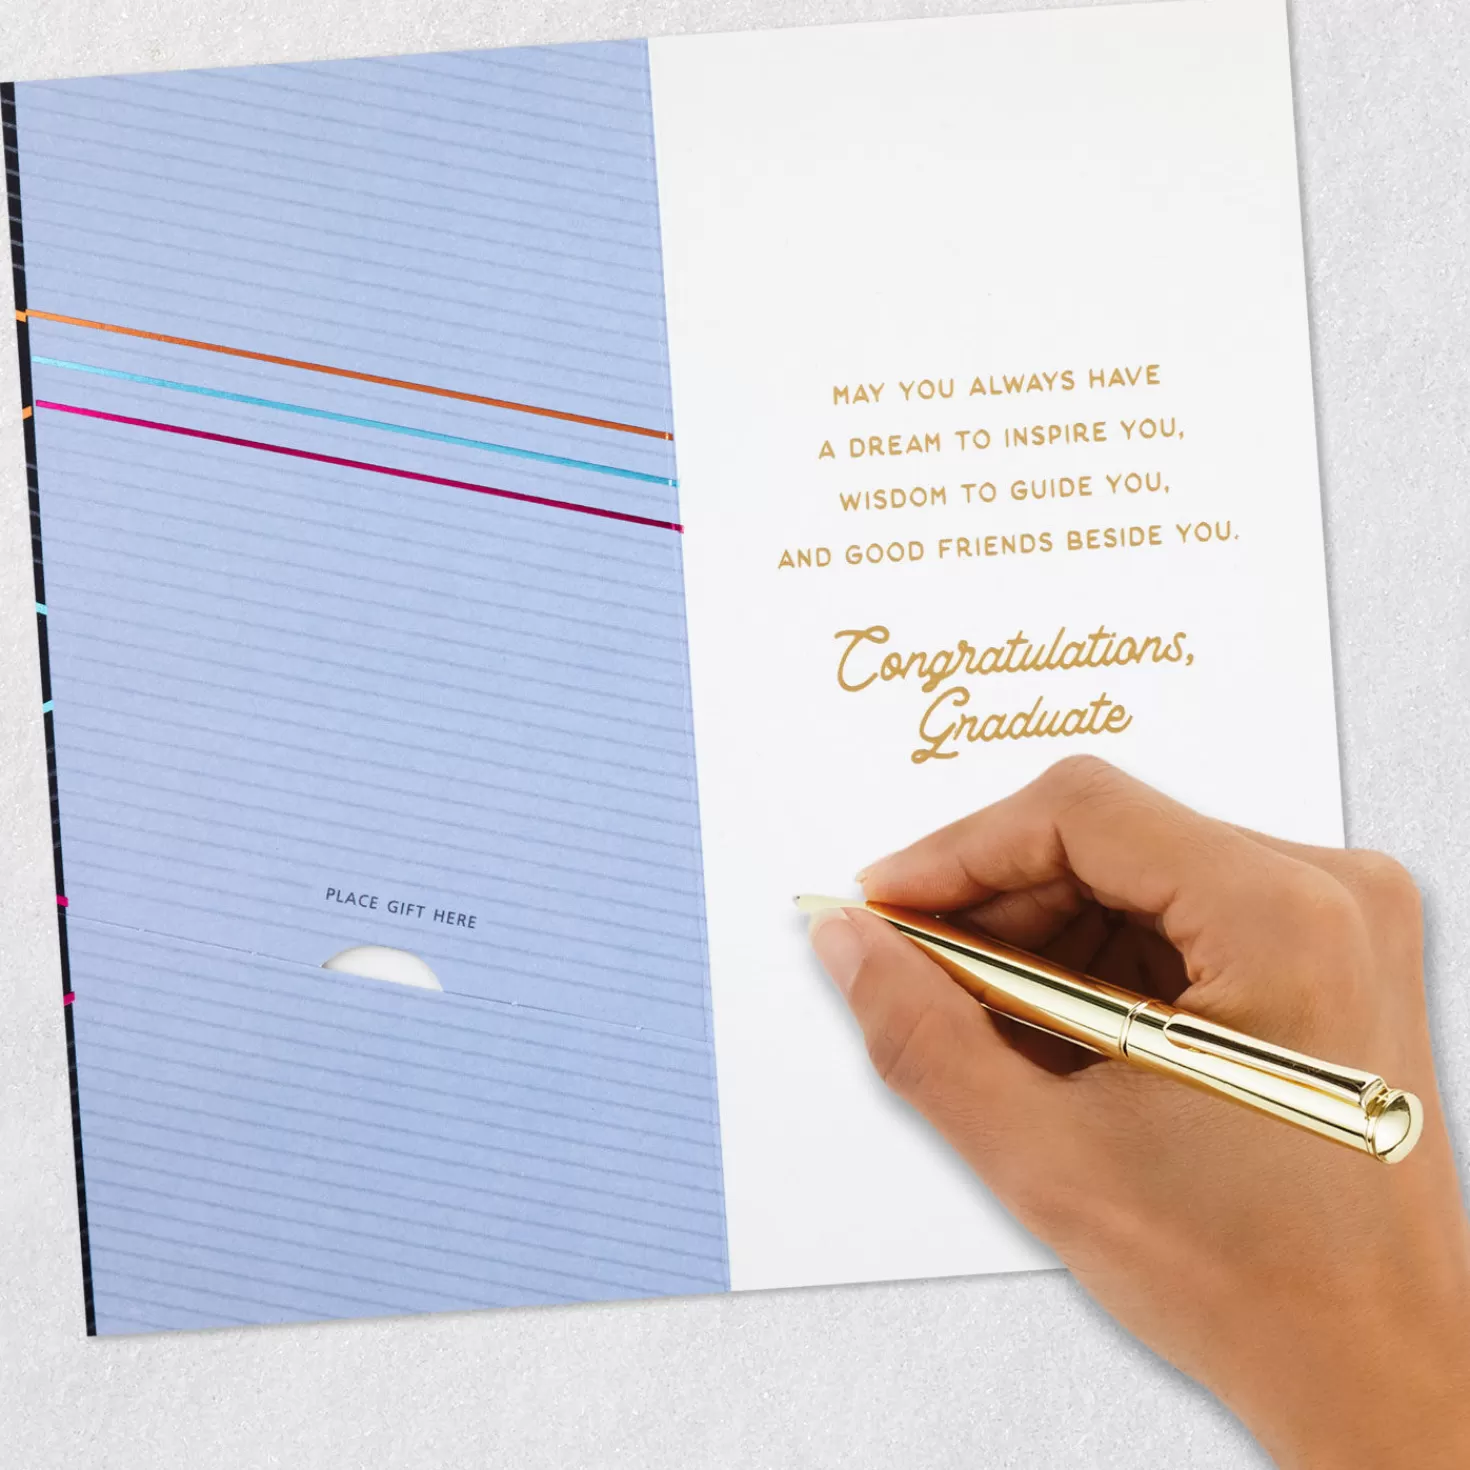 PLACE GIFT HERE
MAY YOU ALWAYS HAVE
A DREAM TO INSPIRE YOU,
WISDOM TO GUIDE YOU,
AND GOOD FRIENDS BESIDE YOU.
Congratulations,
Graduate